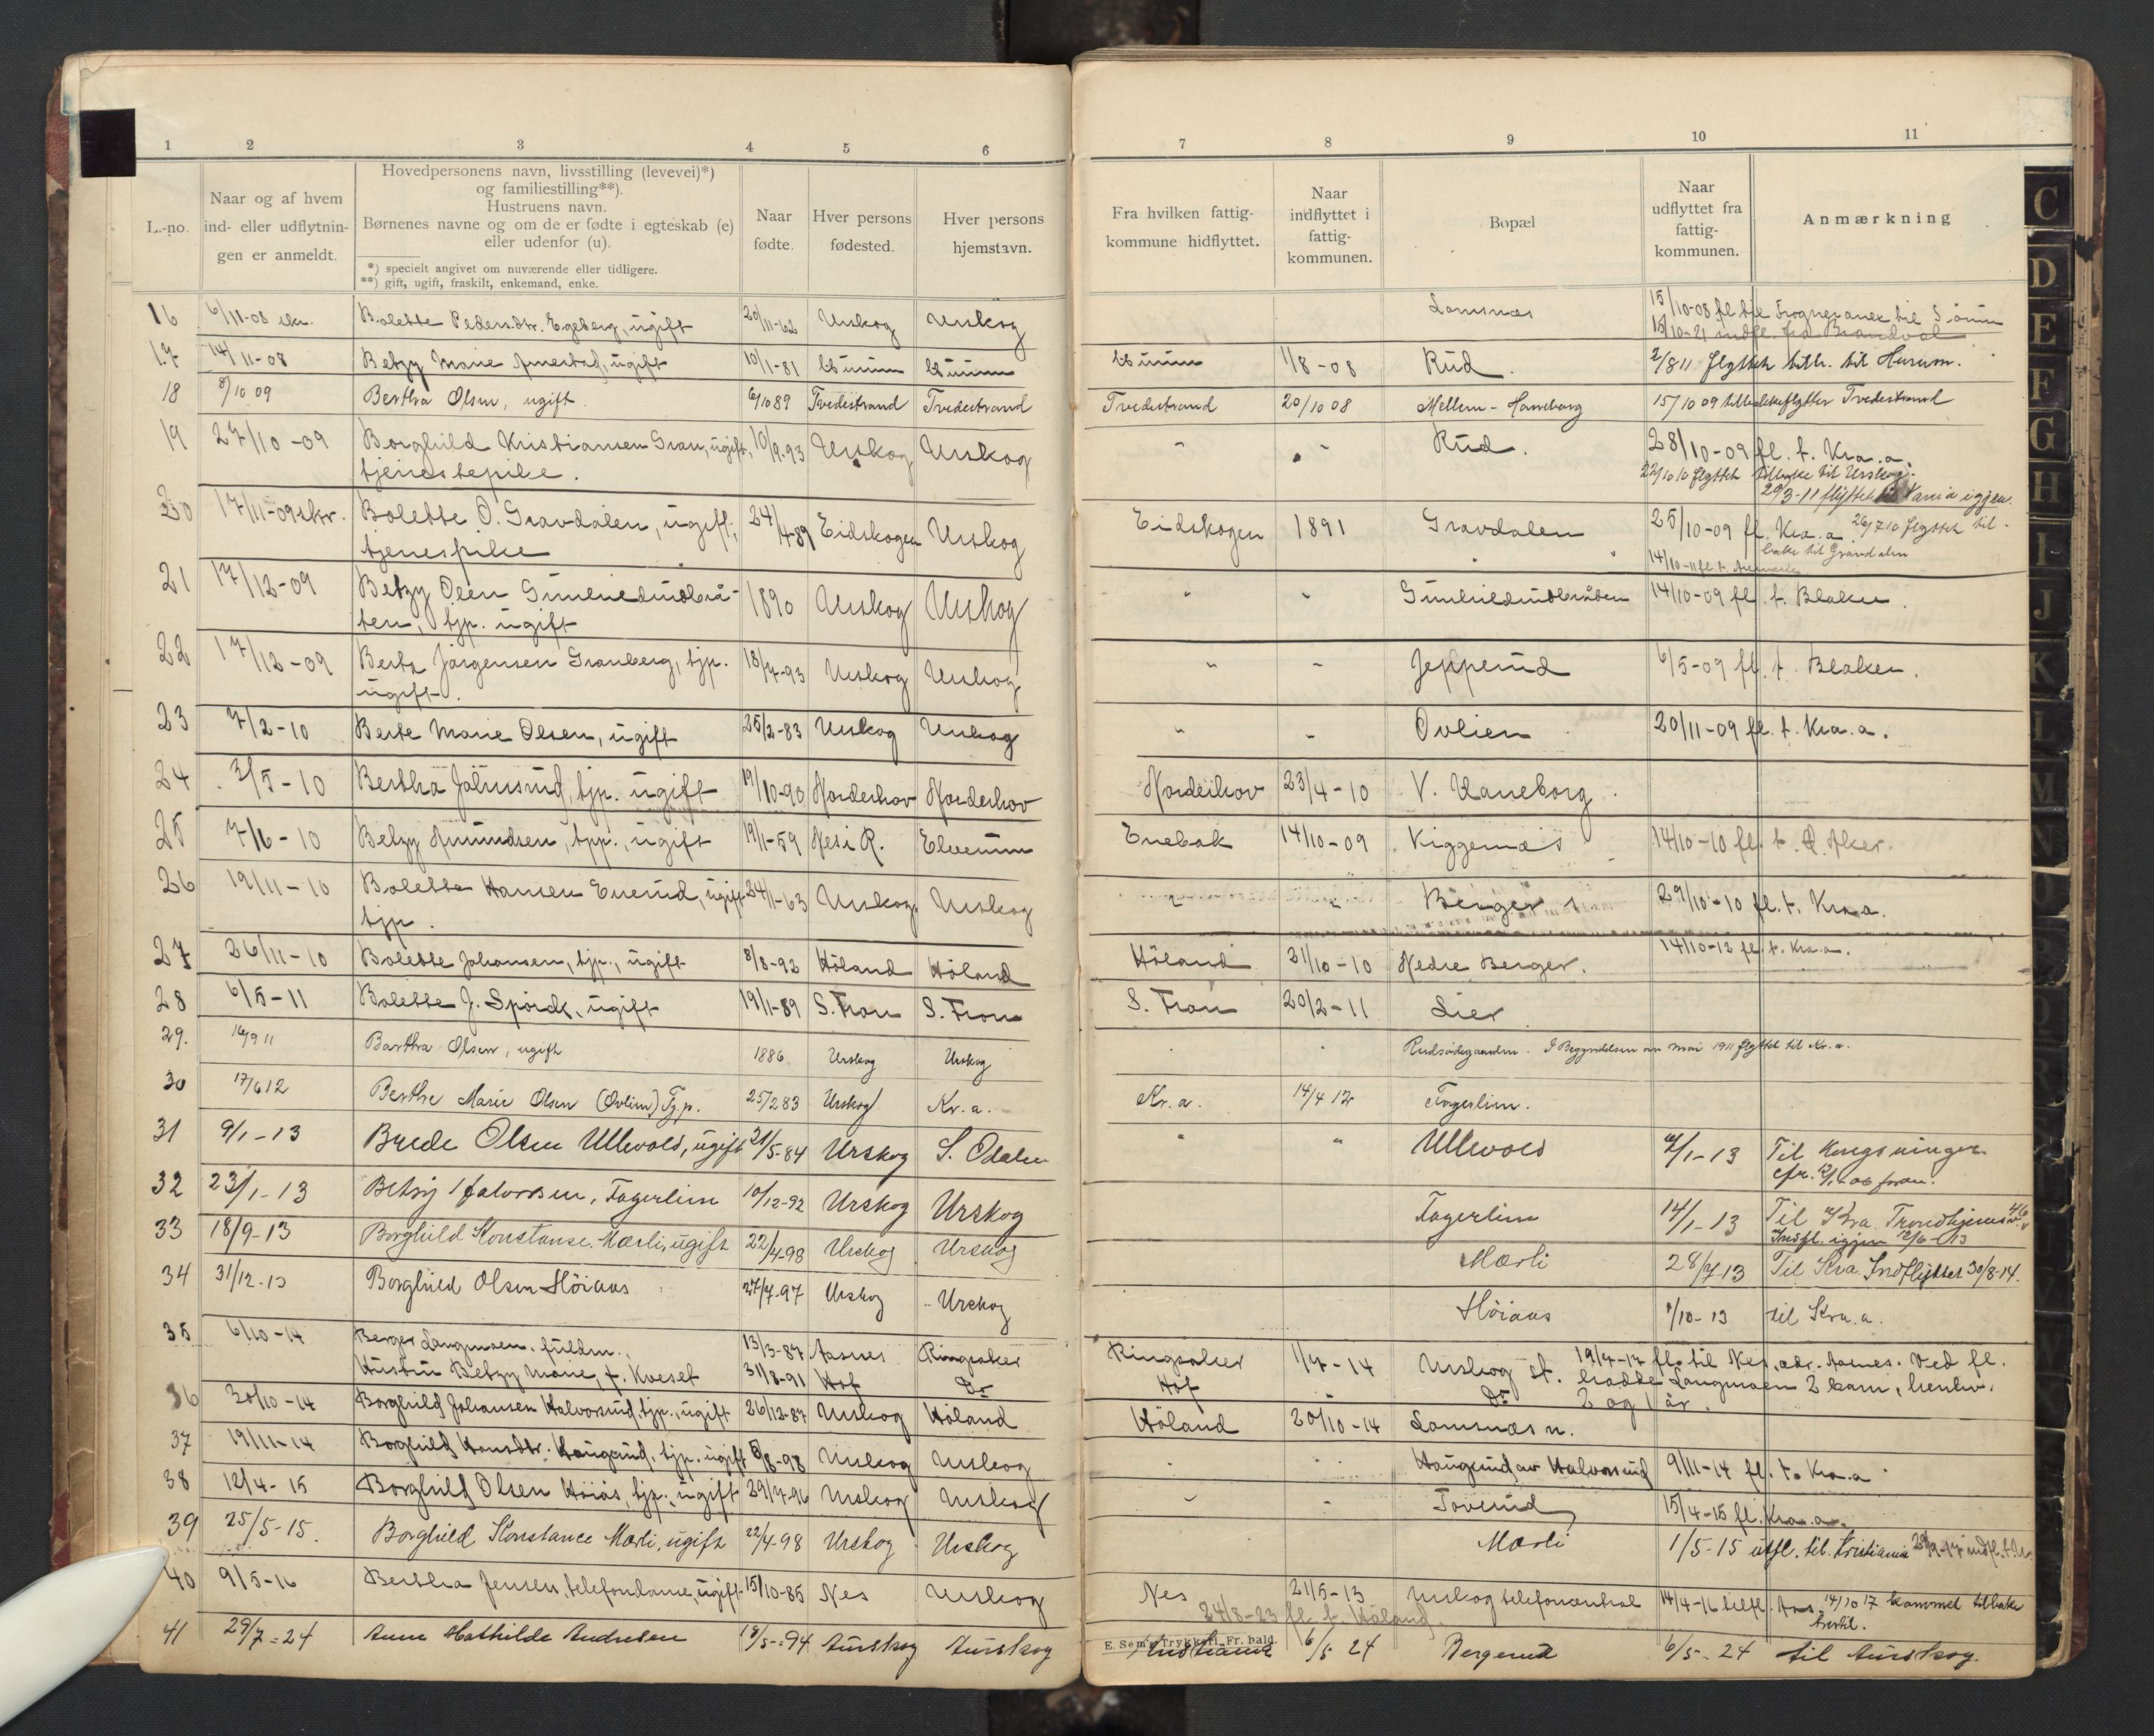 1 2 3 4 5 6 7 8 9 10 11
L.-no.
Naar og af hvem
ind- eller udflytnin-
gen er anmeldt.
Hovedpersonens navn, livsstilling (levevei)*)
og familiestilling**).
Hustruens navn.
Børnenes navne og om de er fødte i egteskab (e)
eller udenfor (u).
*) specielt angivet om nuværende eller tidligere.
**) gift, ugift, fraskilt, enkemand, enke.
Naar
fødte.
Hver persons
fødested.
Hver persons
hjemstavn.
Fra hvilken fattig-
kommune hidflyttet.
Naar
indflyttet i
fattig-
kommunen.
Bopæl
Naar
udflyttet fra
fattig-
kommunen.
Anmærkning
16 6/11-08 Bolette Pedersdtr. Egeberg, ugift 20/11-62 Urskog Urskog Lomsnæs 15/10-08 fl til
15/10-21 indfl. fra Brandval
17 14/11-08 Betzy Marie ugift 10/1-81 1/8-08 Rud. 2/8 11 flyttet tilb. til Hurum.
18 8/10 09 Bertha Olsen, ugift. 6/10 89 Tvedestrand Tvedestrand Tvedestrand 20/10 08 Mellem-Haneborg 15/10 09 Tvedestrand
19 27/10-09 Borghild Kristiansen Gran, ugift, 10/9-93 Urskog Urskog " " Rud. 28/10-09 fl. t. Kra.a.
tjenestepike. 22/10 10 flyttet tilbake til Urskog.
29/3-11 flyttet til Kania igjen.
20 17/11-09 skr. Bolette O. Gravdalen, ugift, 24/4 89 Eidskogen Urskog Eidskogen 1891 Gravdalen 25/10-09 fl. Kra.a. 26/7 10 flyttet til-
tjenespike bake til Gravdalen
14/10-11 fl. t.
21 17/12-09 Betzy Olsen Gunhildrudbrå- 1890 Urskog Urskog " " Gunhildrudbråten 14/10-09 fl. t. Blaker.
ten, tjp. ugift
22 17/12-09 Berta Jørgensen Granberg, tjp. 18/7-93 Urskog Urskog " " Jepperud 6/5-09 fl. t. Blaker.
ugift.
23 7/2-10 Berte Marie Olsen, ugift 25/2-83 Urskog Urskog " " Ovlien 20/11-09 fl. t. Kra.a.
24 3/5-10 Bertha Jålinsrud, tjp. ugift 19/10-90 Norderhov Norderhov Norderhov 23/4-10 V. Haneborg.
25 7/6-10 Betzy Amundsen, tjp., ugift 19/1-59 Nes i R. Elverum Enebak 14/10-09 Kiggernæs 14/10-10 fl. t. Aker.
26 19/11-10 Bolette Hansen Enerud, ugift 24/11-63 Urskog Urskog " " Berger 29/10-10 fl. t. Kra.a.
tjp.
27 26/11-10 Bolette Johansen, tjp., ugift 8/8-92 Høland Høland Høland 21/10-10 Nedre Berger. 14/10-12 fl. t. Kra.a.
28 6/5-11 Bolette J. ugift 19/1-89 S. Fron S. Fron S. Fron 20/2-11 Lier
29. 16/9 11 Bertha Olsen, ugift 1886 Urskog Urskog " " Rudsødegaarden. I Begyndelsen av mai 1911 flyttet til Kr.a.
30 17/6 12 Berthe Marie Olsen (Ovlien) Tjp. 25/2 83 Urskog Kr.a. Kr.a. 14/4 12 Fagerlien.
31 9/1-13 Brede Olsen Ullevold, ugift 21/5-84 Urskog S. Odalen " " Ullevold 2/1-13 Til Kongsvinger
32 23/1-13 Betsy Halvorsen, Fagerlien 10/12-92 Urskog Urskog Fagerlien 14/1-13 Til Kra. Trondhjemsv.
Indfl. igjen 12/6-13
33 18/9-13 Borghild Konstanse Mærli, ugift 22/4-98 Urskog Urskog Mærli 28/7-13 Til Kra. Indflyttet 30/8-14.
34 31/12-13 Borghild Olsen Höiaas 27/7-97 Urskog Urskog Höiaas 1/10-13 til Kra.a.
35 6/10-14 Berger Langmoen, fuldm., 13/3-87 Aasnes Ringsaker Ringsaker 1/7-14 Urskog st. 19/7-17 fl. til Nes, adr. Aarnes. Ved fl.
Hustru Betzy Marie, f. Kveset 31/8-91 Hof Do Hof Do hadde Langmoen 2 barn, henhv.
2 og 1 år.
36 30/10-14 Borghild Johansen Halvorsrud, tjp., ugift 26/12-87 Urskog Høland Høland 20/10-14 Lomsnæs n.
37 19/11-14 Borghild Hansdtr. Haugerud, tjp. ugift 8/8-98 Urskog Urskog " " Haugerud av Halvorsrud 9/11-14 fl. t. Kra.a
38 12/4-15 Borghild Olsen Höiås, tjp., ugift 29/7-96 Urskog Urskog " " Toverud 15/4-15 fl. Kra.a.
39 25/5-15. Borghild Konstance Mærli, ugift 22/4-98 Urskog Urskog Mærli 1/5-15 utfl. til Kristiania
40 9/5-16 Bertha Jensen, telefondame, ugift 15/10-85 Nes Urskog Nes 21/5-13 Urskog telefoncentral 14/4-16 14/10 17 kommet tilbake
24/8-23 fl. t. Høland.
E. Sem's Trykkeri, Fr. hald.
41 29/7-24 Anne Mathilde Andresen 18/5-94 Aurskog Aurskog Kristiania 6/5 24 Bergerud 6/5-24 til Aurskog.
C
D
E
F
G
H
I
J
K
L
M
N
O